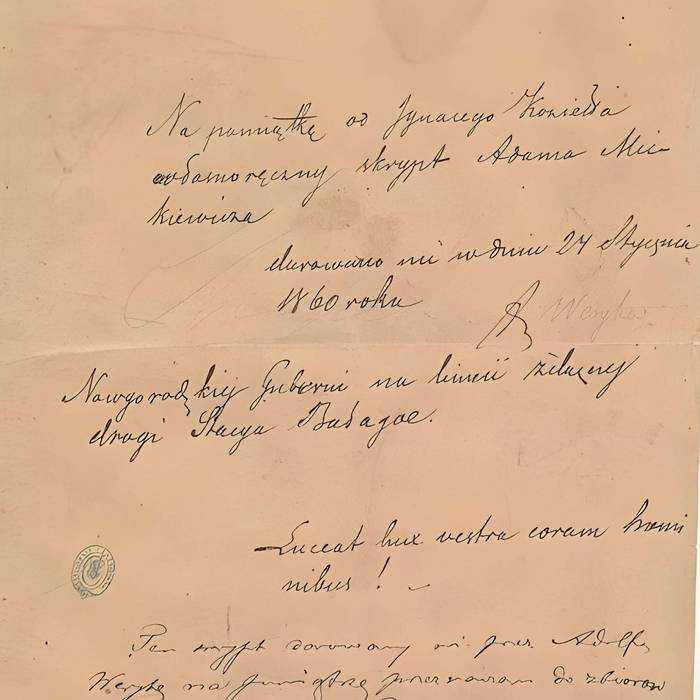 Na pamiątkę od Ignacego Koziełła
własnoręczny skrypt Adama Mic-
kiewicza
darowano mi w dniu 24 Stycznia
1860 roku
A Weryho
Nowgorodzkiej Gubernii na linii żelaznej
drogi Stacya Bałagoe.
Luceat lux vestra coram homi
nibus !
Ten skrypt darowany mi przez Adolfa
Werychę na pamiątkę przeznaczam do zbiorów